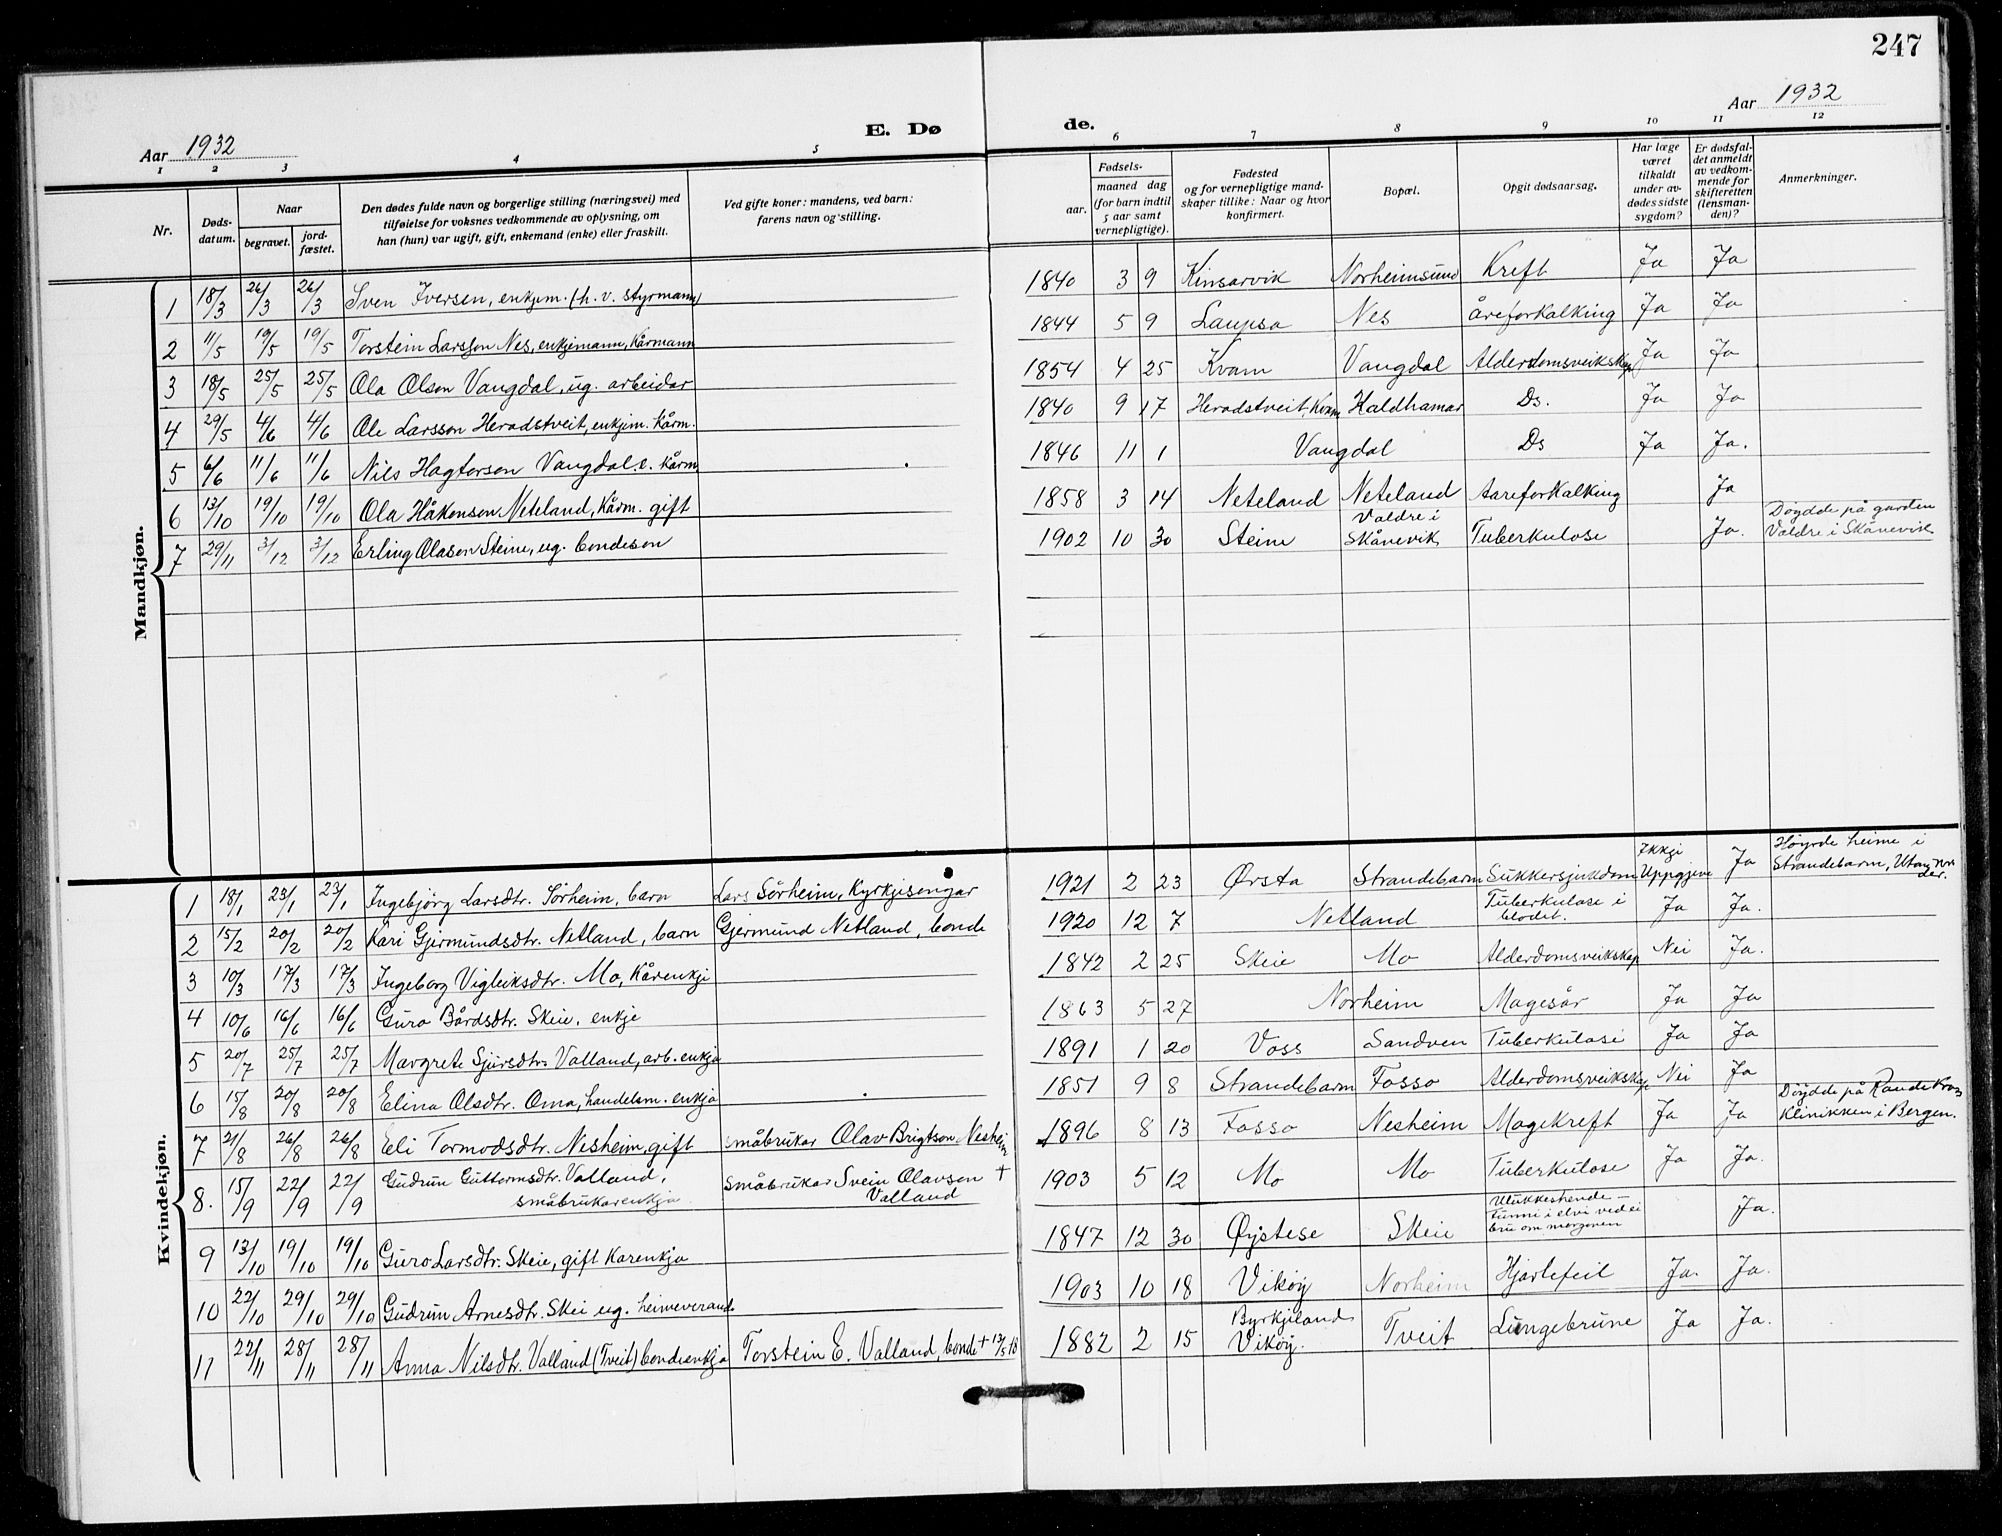 247
Aar 1932
E. Dø
de.
Aar 1932
1 2 3 4 5
6 7 8 9 10 11 12
Nr.
Døds-
datum.
Naar
begravet.
jord-
fæstet.
Den dødes fulde navn og borgerlige stilling (næringsvei) med
tilføielse for voksnes vedkommende av oplysning, om
han (hun) var ugift, gift, enkemand (enke) eller fraskilt.
Ved gifte koner: mandens, ved barn:
farens navn og stilling.
Fødsels-
aar.
maaned dag
(for barn indtil
5 aar samt
vernepligtige).
Fødested
og for vernepligtige mand-
skaper tillike: Naar og hvor
konfirmert.
Bopæl.
Opgit dødsaarsag.
Har læge
været
tilkaldt
under av-
dødes sidste
sygdom?
Er dødsfal-
det anmeldt
av vedkom-
mende for
skifteretten
(lensman-
den)?
Anmerkninger.
Mandkjøn.
1 18/3 26/3 26/3 Sven Iversen, enkjem. (h. v. styrmann) 1840 3 9 Kinsarvik Norheimsund Kreft Ja Ja
2 11/5 19/5 19/5 Torstein Larsson Nes, enkjemann, Kårmann 1844 5 9 Laupsa Nes åreforkalking Ja Ja
3 18/5 25/5 25/5 Ola Olson Vangdal, ug. arbeidar 1854 4 25 Kvam Vangdal Alderdomsveikskap Ja Ja
4 29/5 4/6 4/6 Ole Larsson Heradstveit, enkjem. Kårm. 1840 9 17 Heradstveit, Kvam Haldhamar Ds. Ja Ja
5 6/6 11/6 11/6 Nils Hagtorson Vangdal. e. Kårm 1846 11 1 Vangdal Ds Ja Ja.
6 13/10 19/10 19/10 Ola Håkonson Neteland, Kårm. gift 1858 3 14 Neteland Neteland Aareforkalking Ja
7 29/11 3/12 3/12 Erling Olason Steine, ug. bondeson 1902 10 30 Steine Valdre i Skånevik Tuberkulose Ja. Døydde på garden
Valdre i Skånevik
Kvindekjøn.
1 18/1 23/1 23/1 Ingebjörg Larsdtr. Sörheim, barn Lars Sörheim, Kyrkjesongar 1921 2 23 Ørsta Strandebarm Sukkersjukdom Ikkje Uppgjeve Ja Høyrde heime i
Strandebarm, Utang
2 15/2 20/2 20/2 Kari Gjermundsdtr. Netland, barn Gjermund Netland, bonde 1920 12 7 Netland Tuberkulose i blodet. Ja Ja.
3 10/3 17/3 17/3 Ingeborg Vigleiksdtr. Mo, Kårenkje 1842 2 25 Skeie Mo Alderdomsveikskap Nei Ja.
4 10/6 16/6 16/6 Guro Bårdsdtr. Skeie, enkje 1863 5 27 Norheim Magesår Ja Ja
5 20/7 25/7 25/7 Margrete Sjursdtr. Valland, arb. enkja 1891 1 20 Voss Sandven Tuberkulose Ja Ja
6 15/8 20/8 20/8 Elina Olsdtr. Oma, handelsm. enkja 1851 9 8 Strandebarm Fosso Alderdomsveikskap Nei Ja
7 21/8 26/8 26/8 Eli Tormodsdtr. Nesheim, gift småbrukar Olav Brigtson Nesheim 1896 8 13 Fosso Nesheim Magekreft Ja Ja Døydde på
Klinikken i Bergen.
8. 15/9 22/9 22/9 Gudrun Guttormsdtr. Valland,
småbrukarenkja småbrukar Svein Olavson †
Valland 1903 5 12 Mo Mo Tuberkulose Ja Ja.
9 13/10 19/10 19/10 Guro Larsdtr. Skeie, gift Karenkja 1847 12 30 Øystese Skeie Ulukkeshende —
funni i elvi ved ei
bru om morgonen Ja.
10 22/10 29/10 29/10 Gudrun Arnesdtr. Skei ug. heimeverande 1903 10 18 Vikøy Norheim Hjartefeil Ja. Ja.
11 22/11 28/11 28/11 Anna Nilsdtr. Valland (Tveit) bondeenkja Torstein E. Valland, bonde † 1882 2 15 Byrkjeland
Vikøy. Tveit Lungebrune Ja Ja.